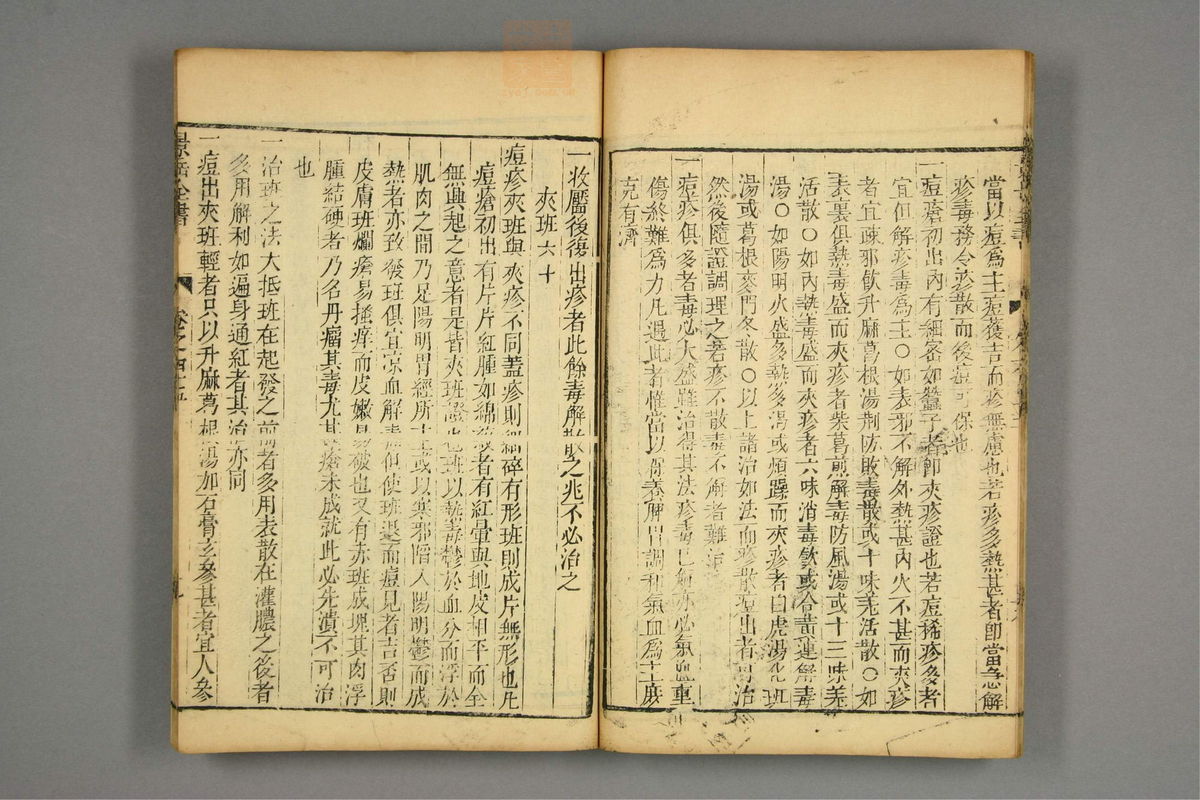 當以痘爲主痘獲吉而疹無慮也若疹多熱甚者卽當急解
疹毒務令疹散而後痘可保也
一痘瘡初出內有細密如蠶子者卽夾疹證也若痘稀疹多者
宜但解疹毒爲主○如表邪不解外熱甚內火不甚而夾疹
者宜疎邪飲升麻葛根湯荆防敗毒散或十味羌活散○如
表裏俱熱毒盛而夾疹者柴葛煎解毒防風湯或十三味羌
活散○如內熱毒盛而夾疹者六味消毒飲或合黃連解毒
湯○如陽明火盛多熱多渴或煩躁而夾疹者白虎湯化班
湯或葛根麥門冬散○以上諸治如法而疹散痘出者可治
然後隨證調理之若疹不散毒不解者難治
一痘疹俱多者毒必大盛雖治得其法疹毒已解亦必氣血重
傷終難爲力凡遇此者惟當以保養脾胃調和氣血爲主庶
克有濟
一收靨後復出疹者此餘毒解散之兆不必治之
夾班六十
痘疹夾班與夾疹不同蓋疹則細碎有形班則成片無形也凡
痘瘡初出有片片紅腫如綿紋者有紅暈與地皮相平而全
無興起之意者是皆夾班證也班以熱毒鬱於血分而浮於
肌肉之間乃足陽明胃經所主或以寒邪陷入陽明鬱而成
熱者亦致發班俱宜凉血解毒但使班退而痘見者吉否則
皮膚班爛瘡易搔痒而皮嫩易破也又有赤班成塊其肉浮
腫結硬者乃名丹瘤其毒尤甚瘡未成就此必先潰不可治
也
一治班之法大抵班在起發之前者多用表散在灌膿之後者
多用解利如遍身通紅者其治亦同
一痘出夾班輕者只以升麻葛根湯加石膏玄參甚者宜人參
景岳全書